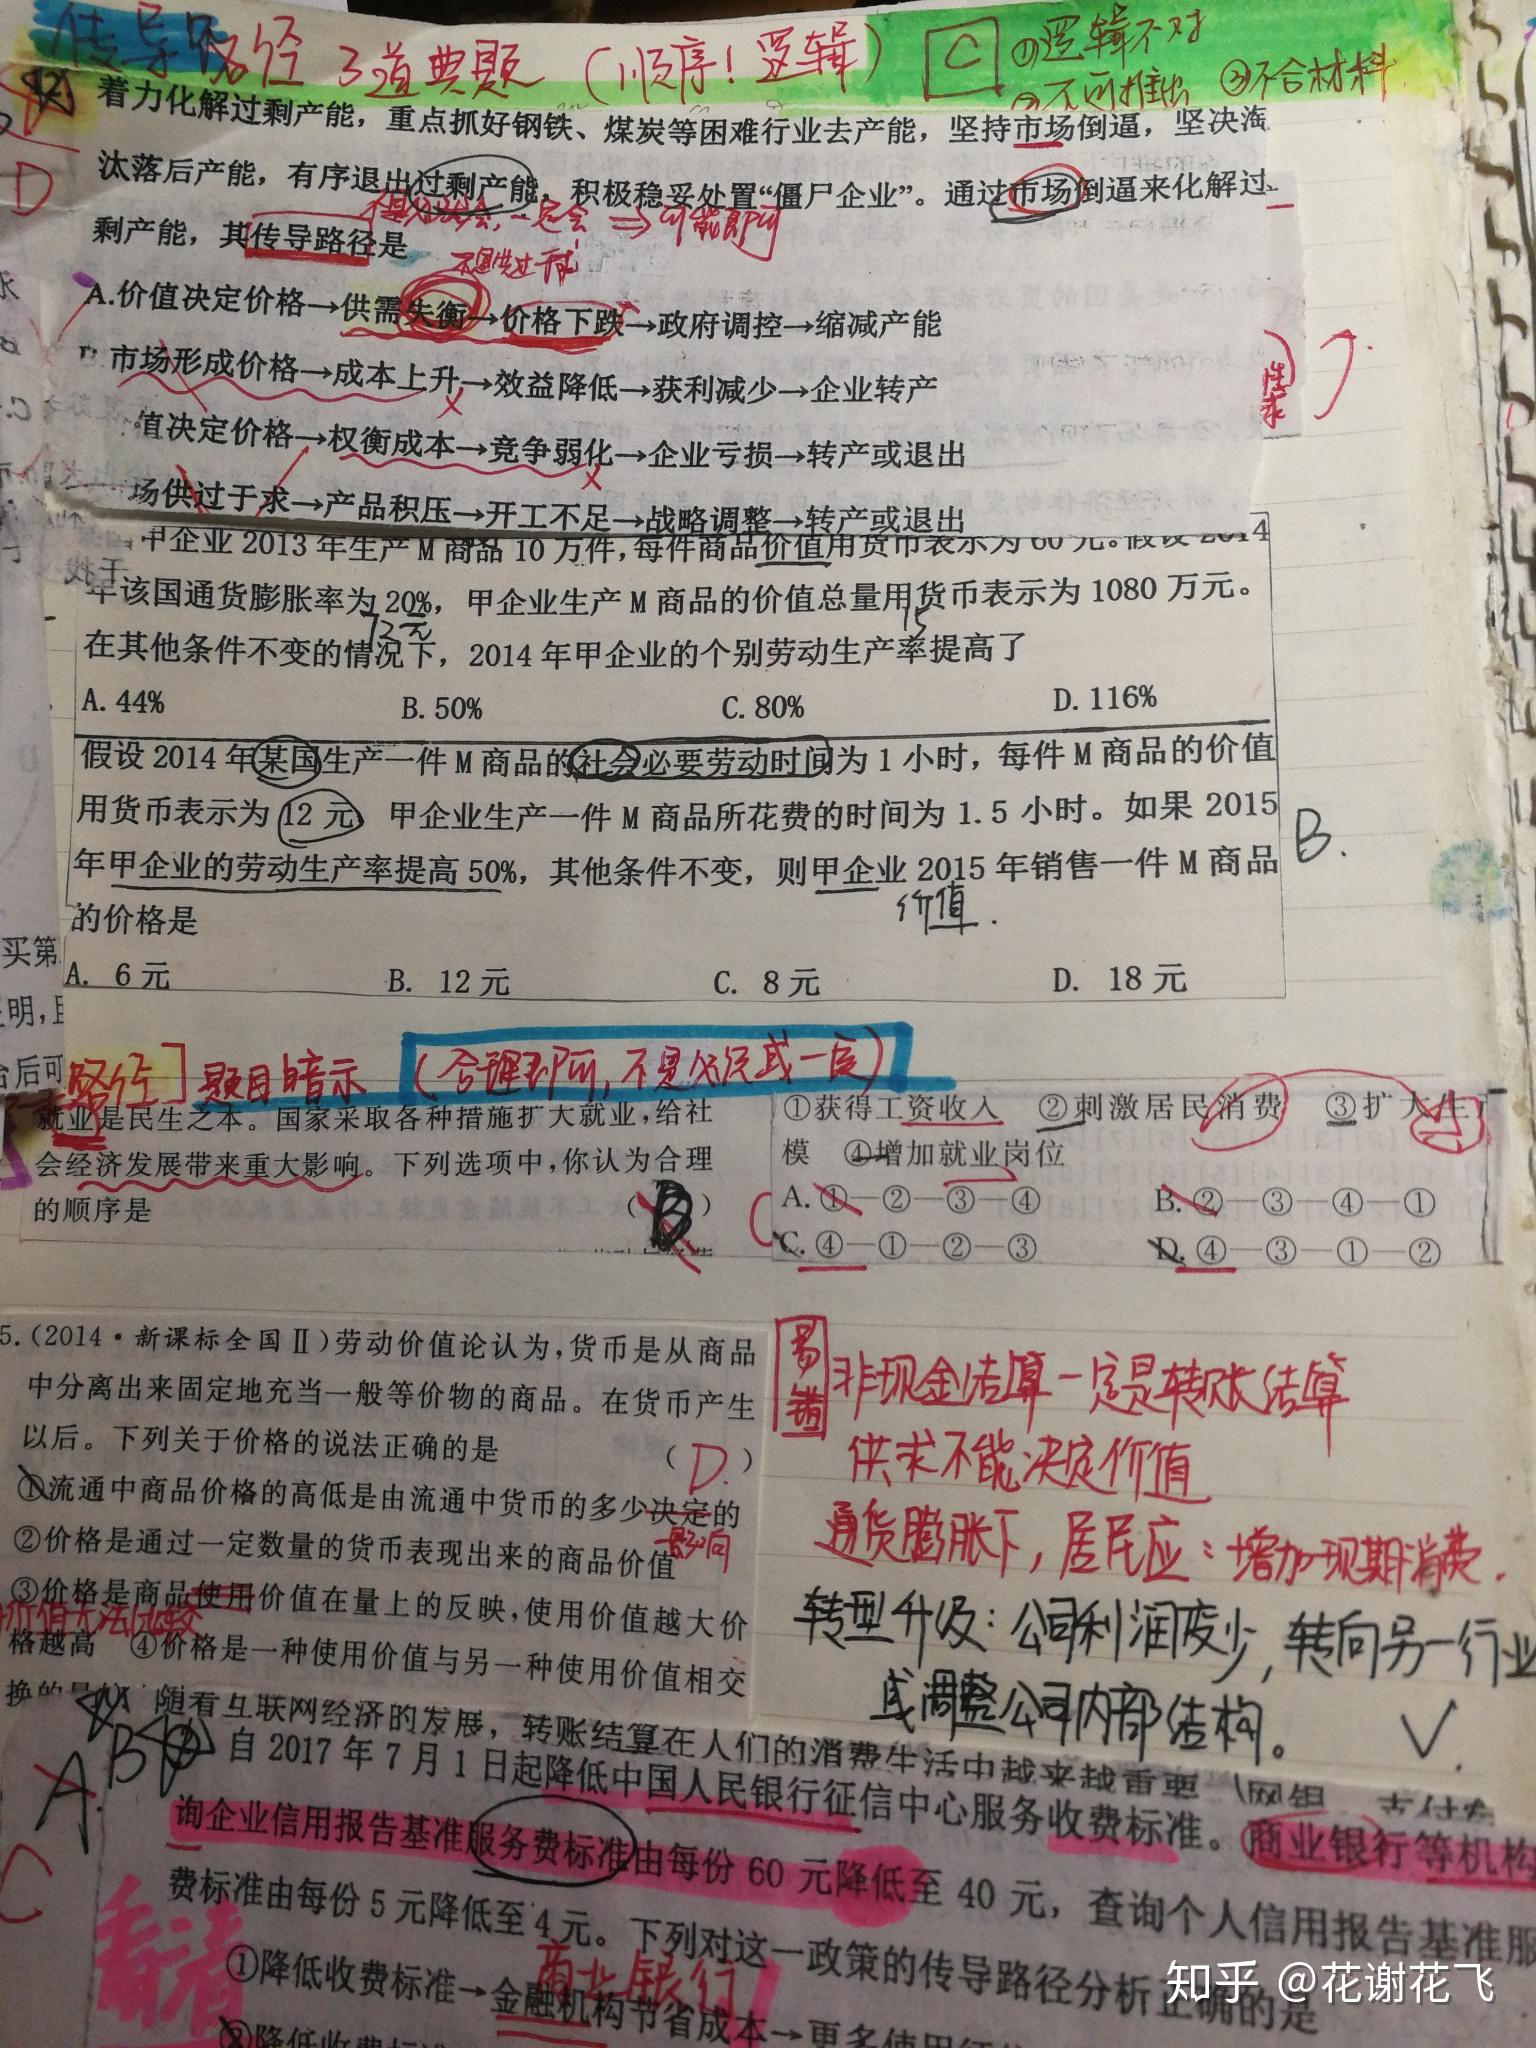 传导路径 3道典题（顺序！逻辑） C ①逻辑不对
②不可推出 ③不合材料
着力化解过剩产能，重点抓好钢铁、煤炭等困难行业去产能，坚持市场倒逼，坚决淘
D
汰落后产能，有序退出过剩产能，积极稳妥处置“僵尸企业”。通过市场倒逼来化解过
一定会 ⇒ 可能即可
剩产能，其传导路径是
A.价值决定价格→供需失衡→价格下跌→政府调控→缩减产能
市场形成价格→成本上升→效益降低→获利减少→企业转产
值决定价格→权衡成本→竞争弱化→企业亏损→转产或退出
场供过于求→产品积压→开工不足→战略调整→转产或退出
甲企业2013年生产M商品10万件，每件商品价值用货币表示为60元。假设2014
年该国通货膨胀率为20%，甲企业生产M商品的价值总量用货币表示为1080万元。
72元 15
在其他条件不变的情况下，2014年甲企业的个别劳动生产率提高了
A.44% B.50% C.80% D.116%
假设2014年某国生产一件M商品的社会必要劳动时间为1小时，每件M商品的价值
用货币表示为12元 甲企业生产一件M商品所花费的时间为1.5小时。如果2015
B.
年甲企业的劳动生产率提高50%，其他条件不变，则甲企业2015年销售一件M商品
价值.
的价格是
A. 6元 B. 12元 C. 8元 D. 18元
路径］题目暗示（合理即可，不是必须或一定）
就业是民生之本。国家采取各种措施扩大就业，给社
会经济发展带来重大影响。下列选项中，你认为合理
的顺序是 （B）
①获得工资收入 ②刺激居民消费 ③扩大生产
模 ④增加就业岗位
A.①—②—③—④ B.②—③—④—①
C.④—①—②—③ D.④—③—①—②
5.(2014·新课标全国Ⅱ)劳动价值论认为，货币是从商品
中分离出来固定地充当一般等价物的商品。在货币产生
以后。下列关于价格的说法正确的是 （D.）
①流通中商品价格的高低是由流通中货币的多少决定的
影响
②价格是通过一定数量的货币表现出来的商品价值
③价格是商品使用价值在量上的反映，使用价值越大价
价值无法比较
格越高 ④价格是一种使用价值与另一种使用价值相交
换的
易错
非现金结算一定是转账结算
供求不能决定价值
通货膨胀下，居民应：增加现期消费.
转型升级：公司利润变少，转向另一行业
或调整公司内部结构。 √.
随着互联网经济的发展，转账结算在人们的消费生活中越来越重要（网银、支付
A. B
自2017年7月1日起降低中国人民银行征信中心服务收费标准。商业银行等机构
询企业信用报告基准服务费标准由每份60元降低至40元，查询个人信用报告基准服
C
费标准由每份5元降低至4元。下列对这一政策的传导路径分析正确的是
看清
商业银行
①降低收费标准→金融机构节省成本→更多使用征
②降低收费标准
知乎 @花谢花飞